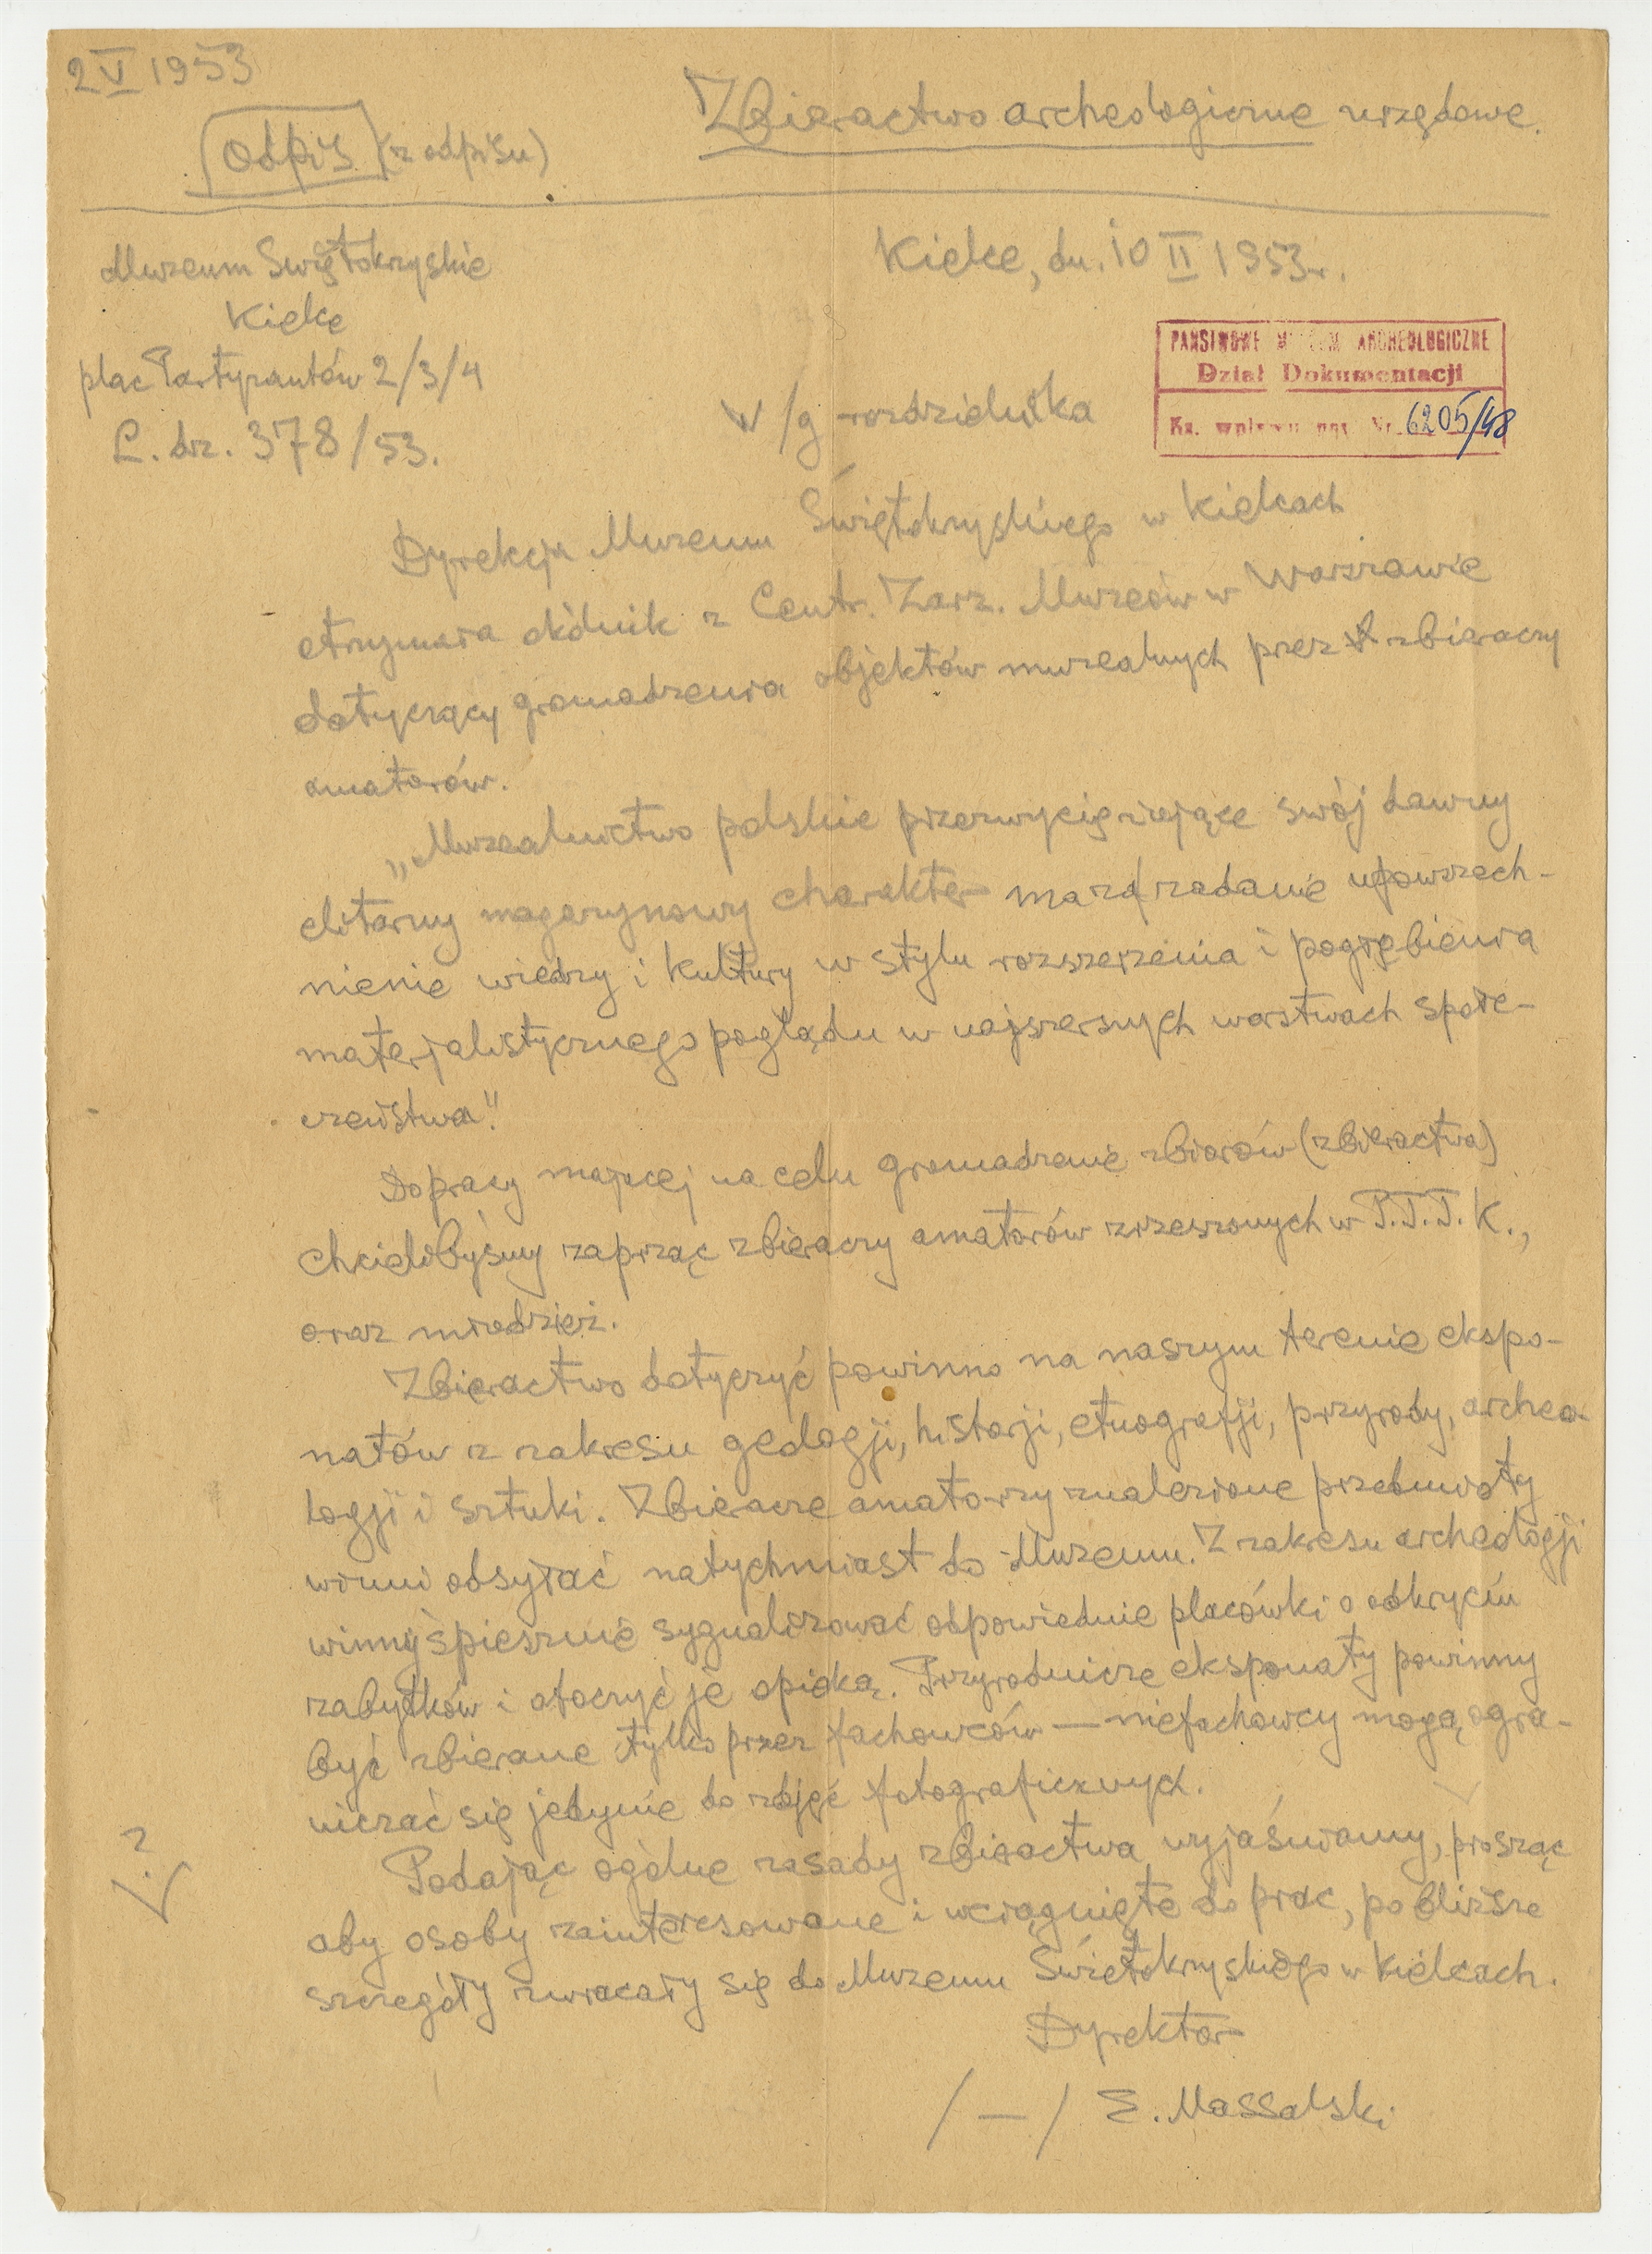 2 V 1953
Zbieractwo archeologiczne urzędowe.
Odpis (z odpisu)
Muzeum Świętokrzyskie
Kielce
plac Partyzantów 2/3/4
L. dz. 378/53.
Kielce, dn. 10 II 1953r.
PAŃSTWOWE MUZEUM ARCHEOLOGICZNE
Dział Dokumentacji
Ks. wpływu Nr. 6205/48
w/g rozdzielnika
Dyrekcja Muzeum Świętokrzyskiego w Kielcach
otrzymała okólnik z Centr. Zarz. Muzeów w Warszawie
dotyczący gromadzenia objektów muzealnych przez zbieraczy
amatorów.
„Muzealnictwo polskie przezwyciężające swój dawny
elitarny magazynowy charakter ma za zadanie upowszech-
nienie wiedzy i kultury w stylu rozszerzenia i pogłębienia
materjalistycznego poglądu w najszerszych warstwach społe-
czeństwa".
Do pracy mającej na celu gromadzenie zbiorów (zbieractwa)
chcielibyśmy zaprząc zbieraczy amatorów zrzeszonych w P.T.T.K.,
oraz młodzież.
Zbieractwo dotyczyć powinno na naszym terenie ekspo-
natów z zakresu geologji, historji, etnografji, przyrody, archeo-
logji i sztuki. Zbieracze amatorzy znalezione przedmioty
winni odsyłać natychmiast do Muzeum. Z zakresu archeologji
winny śpiesznie sygnalizować odpowiednie placówki o odkryciu
zabytków i otoczyć je opieką. Przyrodnicze eksponaty powinny
być zbierane tylko przez fachowców — niefachowcy mogą ogra-
niczać się jedynie do zdjęć fotograficznych.
?
V
Podając ogólne zasady zbieractwa wyjaśniamy, prosząc
aby osoby zainteresowane i wciągnięte do prac, po bliższe
szczegóły zwracały się do Muzeum Świętokrzyskiego w Kielcach.
Dyrektor
/—/ E. Massalski